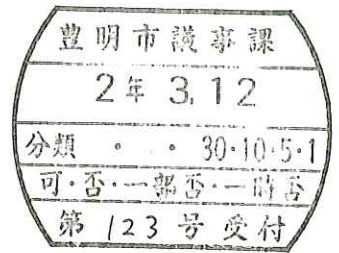 豊明市議事課
2年 3.12
分類 ・ ・ 30・10・5・1
可・否・一部否・一時否
第 123 号 受付